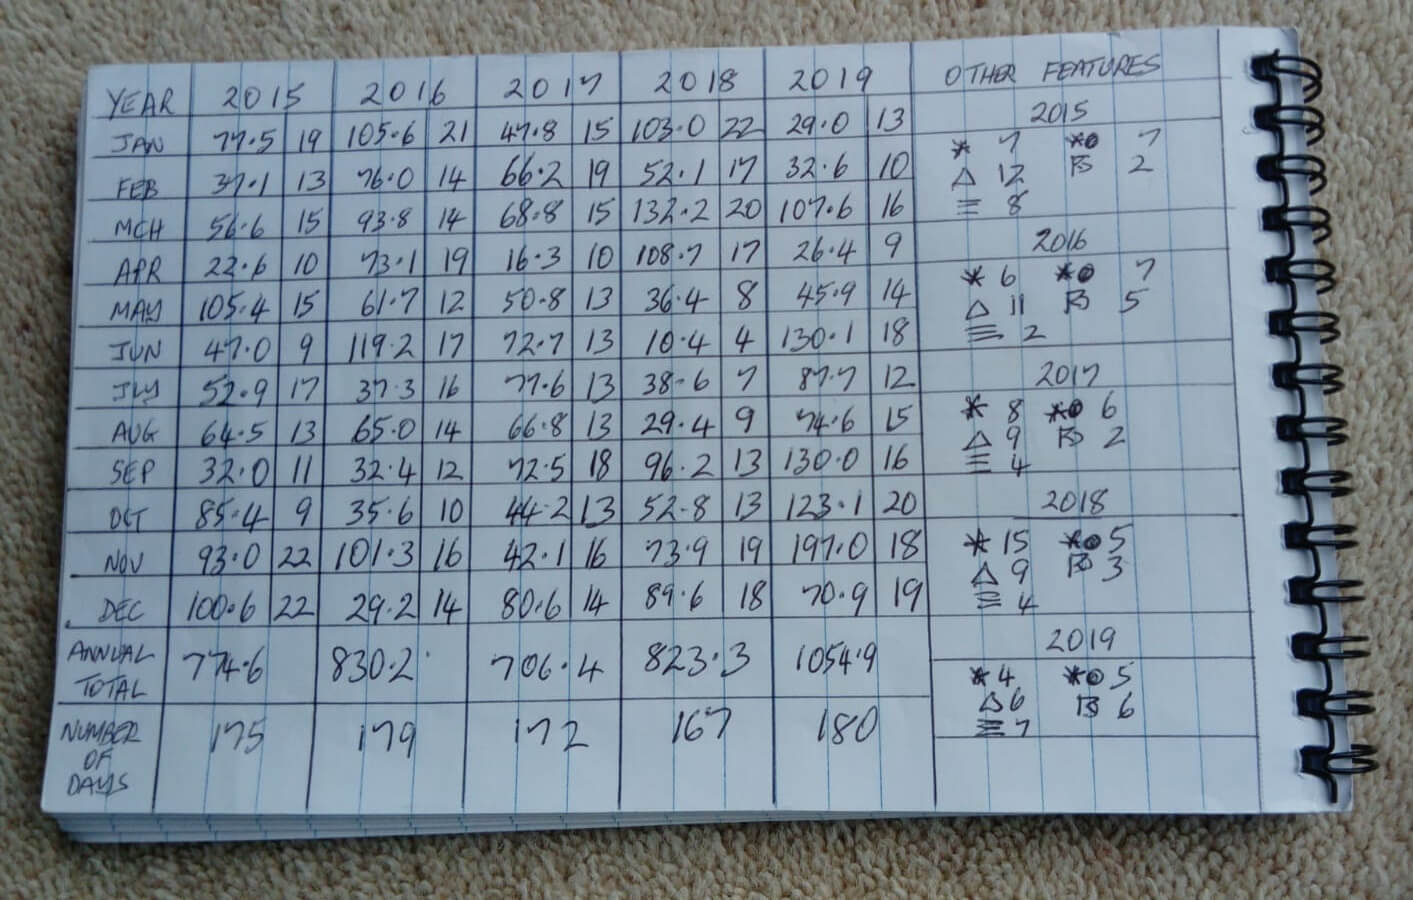 YEAR 2015 2016 2017 2018 2019 OTHER FEATURES
JAN 77.5 19 105.6 21 47.8 15 103.0 22 29.0 13
FEB 37.1 13 76.0 14 66.2 19 52.1 17 32.6 10
MCH 56.6 15 93.8 14 68.8 15 132.2 20 107.6 16
APR 22.6 10 73.1 19 16.3 10 108.7 17 26.4 9
MAY 105.4 15 61.7 12 50.8 13 36.4 8 45.9 14
JUN 47.0 9 119.2 17 72.7 13 10.4 4 130.1 18
JLY 52.9 17 37.3 16 77.6 13 38.6 7 87.7 12
AUG 64.5 13 65.0 14 66.8 13 29.4 9 74.6 15
SEP 32.0 11 32.4 12 72.5 18 96.2 13 130.0 16
OCT 85.4 9 35.6 10 44.2 13 52.8 13 123.1 20
NOV 93.0 22 101.3 16 42.1 16 73.9 19 197.0 18
DEC 100.6 22 29.2 14 80.6 14 89.6 18 70.9 19
ANNUAL TOTAL 774.6 830.2 706.4 823.3 1054.9
NUMBER OF DAYS 175 179 172 167 180
2015
* 7 *● 7
△ 12 2
≡ 8
2016
* 6 *● 7
△ 11 5
≡ 2
2017
* 8 *● 6
△ 9 2
≡ 4
2018
* 15 *● 5
△ 9 3
≡ 4
2019
* 4 *● 5
△ 6 6
≡ 7